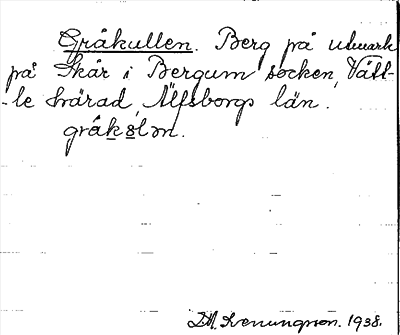 Gråkullen. Berg på utmark
på Skår i Bergum socken, Vätt-
-le härad, Älfsborgs län.
gråkslən.
Wenungson. 1938.